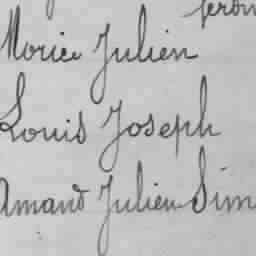 Morice Julien
Louis Joseph
Amand Julien Sim